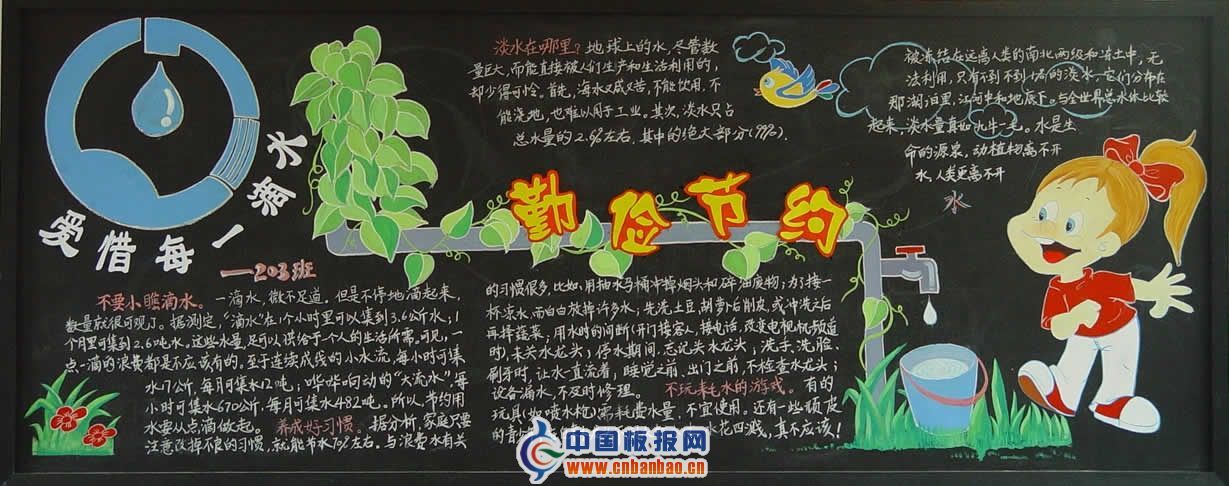 爱惜每一滴水
——203班
不要小瞧滴水。一滴水,微不足道。但是不停地滴起来,
数量就很可观了。据测定,“滴水”在1个小时里可以集到3.6公斤水;1
个月里可集到2.6吨水。这些水量,足可以供给一个人的生活所需。可见,一
点一滴的浪费都是不应该有的。至于连续成线的小水流,每小时可集
水17公斤,每月可集水12吨;哗哗响动的“大流水”,每
小时可集水670公斤,每月可集水482吨。所以,节约用
水要从点滴做起。 养成好习惯。据分析,家庭只要
注意改掉不良的习惯,就能节水70%左右。与浪费水有关
勤俭节约
的习惯很多,比如,用抽水马桶冲掉烟头和碎细废物;为了接一
杯凉水,而白白放掉许多水;先洗土豆、胡萝卜后削皮,或冲洗之后
再择蔬菜;用水时的间断(开门接客人,接电话,改变电视机频道
时),未关水龙头;停水期间,忘记关水龙头;洗手、洗脸、
刷牙时,让水一直流着;睡觉之前、出门之前,不检查水龙头;
设备漏水,不及时修理。 不玩耗水的游戏。有的
玩具(如喷水枪)需耗费水量,不宜使用。还有一些顽皮
的青 水花四溅,真不应该!
淡水在哪里?地球上的水,尽管数
量巨大,而能直接被人们生产和生活利用的,
却少得可怜。首先,海水又咸又苦,不能饮用,不
能浇地,也难以用于工业。其次,淡水只占
总水量的2.6%左右,其中的绝大部分(99%),
被冻结在远离人类的南北两级和冻土中,无
法利用,只有不到不到1%的淡水,它们分布在
那湖泊里,江河中和地底下。与全世界总水体比较
起来,淡水量真如九牛一毛。水是生
命的源泉,动植物离不开
水,人类更离不开
水
中国板报网
www.cnbanbao.cn